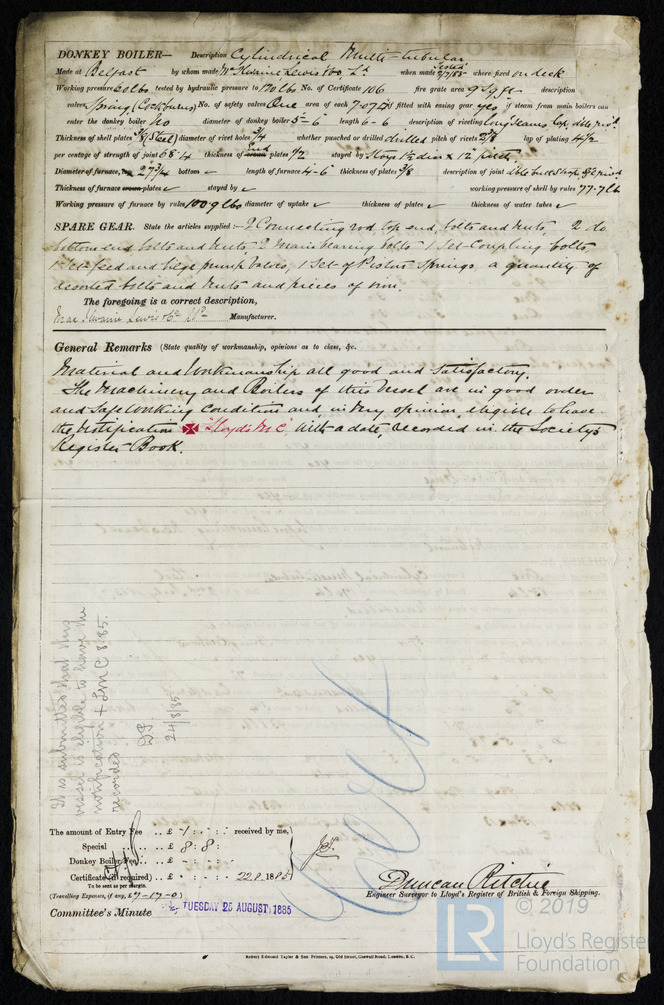 DONKEY BOILER— Description Cylindrical Multi-tubular
Made at Belfast by whom made Mc Ilwaine, Lewis & Co, Ld. when made Tested 2/7/85 where fixed on deck
Working pressure 60 lbs tested by hydraulic pressure to 120 lbs No. of Certificate 106 fire grate area 9 sq ft description
valves Spring (Cockburns) No. of safety valves One area of each 7·07 fitted with easing gear yes if steam from main boilers can
enter the donkey boiler No diameter of donkey boiler 5-6 length 6-6 description of riveting long seams lap, dble rivd.
Thickness of shell plates (Steel) diameter of rivet holes 3/4 whether punched or drilled drilled pitch of rivets 2 7/8 lap of plating 4 1/2
per centage of strength of joint 68·4 thickness of end crown plates 1/2 stayed by stays 1 1/2 dia × 12" pitch
Diameter of furnace, top 27 3/4 bottom ✓ length of furnace 4-6 thickness of plates 3/8 description of joint dble butt strap, sgle rivd
Thickness of furnace crown plates ✓ stayed by ✓ working pressure of shell by rules 77·7 lb
Working pressure of furnace by rules 100·9 lbs diameter of uptake ✓ thickness of plates ✓ thickness of water tubes ✓
SPARE GEAR. State the articles supplied:— 2 Connecting rod, top end, bolts and nuts, 2 do
bottom end bolts and nuts, 2 Main bearing bolts 1 Set Coupling bolts,
1 Set feed and bilge pump valves, 1 Set of Piston Springs, a quantity of
assorted bolts and nuts and pieces of iron.
The foregoing is a correct description,
Mac Ilwaine Lewis & Co Ld. Manufacturer.
General Remarks (State quality of workmanship, opinions as to class, &c. )
Material and Workmanship all good and satisfactory.
The Machinery and Boilers of this Vessel are in good order
and safe working condition and in my opinion, eligible to have
the notification ✠ Lloyd's M C, with a date, recorded in the Society's
Register Book.
It is submitted that this
vessel is eligible to have the
notification + LMC 8.85.
recorded
24/8/85
The amount of Entry Fee .. £ 1 : - : - received by me,
Special .. .. £ 8 : 8 :
Donkey Boiler Fee .. .. £ - : - : -
Certificate (if required) .. £ - : - : - 22.8.1885
To be sent as per margin.
(Travelling Expenses, if any, £7-17-0)
Duncan Ritchie
Engineer Surveyor to Lloyd's Register of British & Foreign Shipping.
Committee's Minute TUESDAY 25 AUGUST, 1885
Robert Edmund Taylor & Son Printers, 19, Old Street, Goswell Road, London, E.C.
© 2019
LR
Lloyd's Register
Foundation